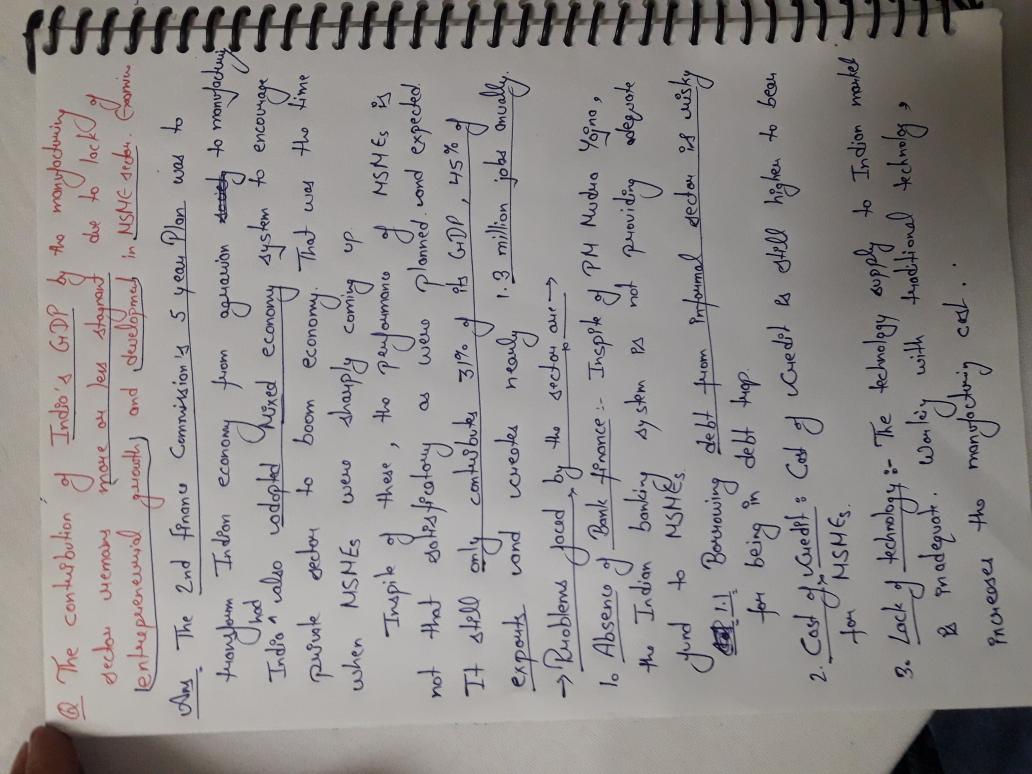 Q The contribution of India's GDP by the manufacturing
sector remains more or less stagnant due to lack of
entrepreneurial growth and development in MSME sector. Examine
Ans - The 2nd finance Commission's 5 year Plan was to
transform Indian economy from agrarian to manufacturing
India had also adopted Mixed economy system to encourage
private sector to boom economy. That was the time
when MSMEs were sharply coming up.
Inspite of these, the performance of MSMEs is
not that satisfactory as were planned and expected
It still only contributes 31% of its GDP, 45% of
exports and creates nearly 1.3 million jobs anually.
→ Problems faced by the sector are →
1. Absence of Bank finance :- Inspite of PM Mudra Yojna,
the Indian banking system is not providing adequate
fund to MSMEs.
1.1 Borrowing debt from informal sector is risky
for being in debt trap.
2. Cost of Credit : Cost of Credit is still higher to bear
for MSMEs.
3. Lack of technology :- The technology supply to Indian market
is inadequate. Workig with traditional technology,
increases the manufacturing cost.